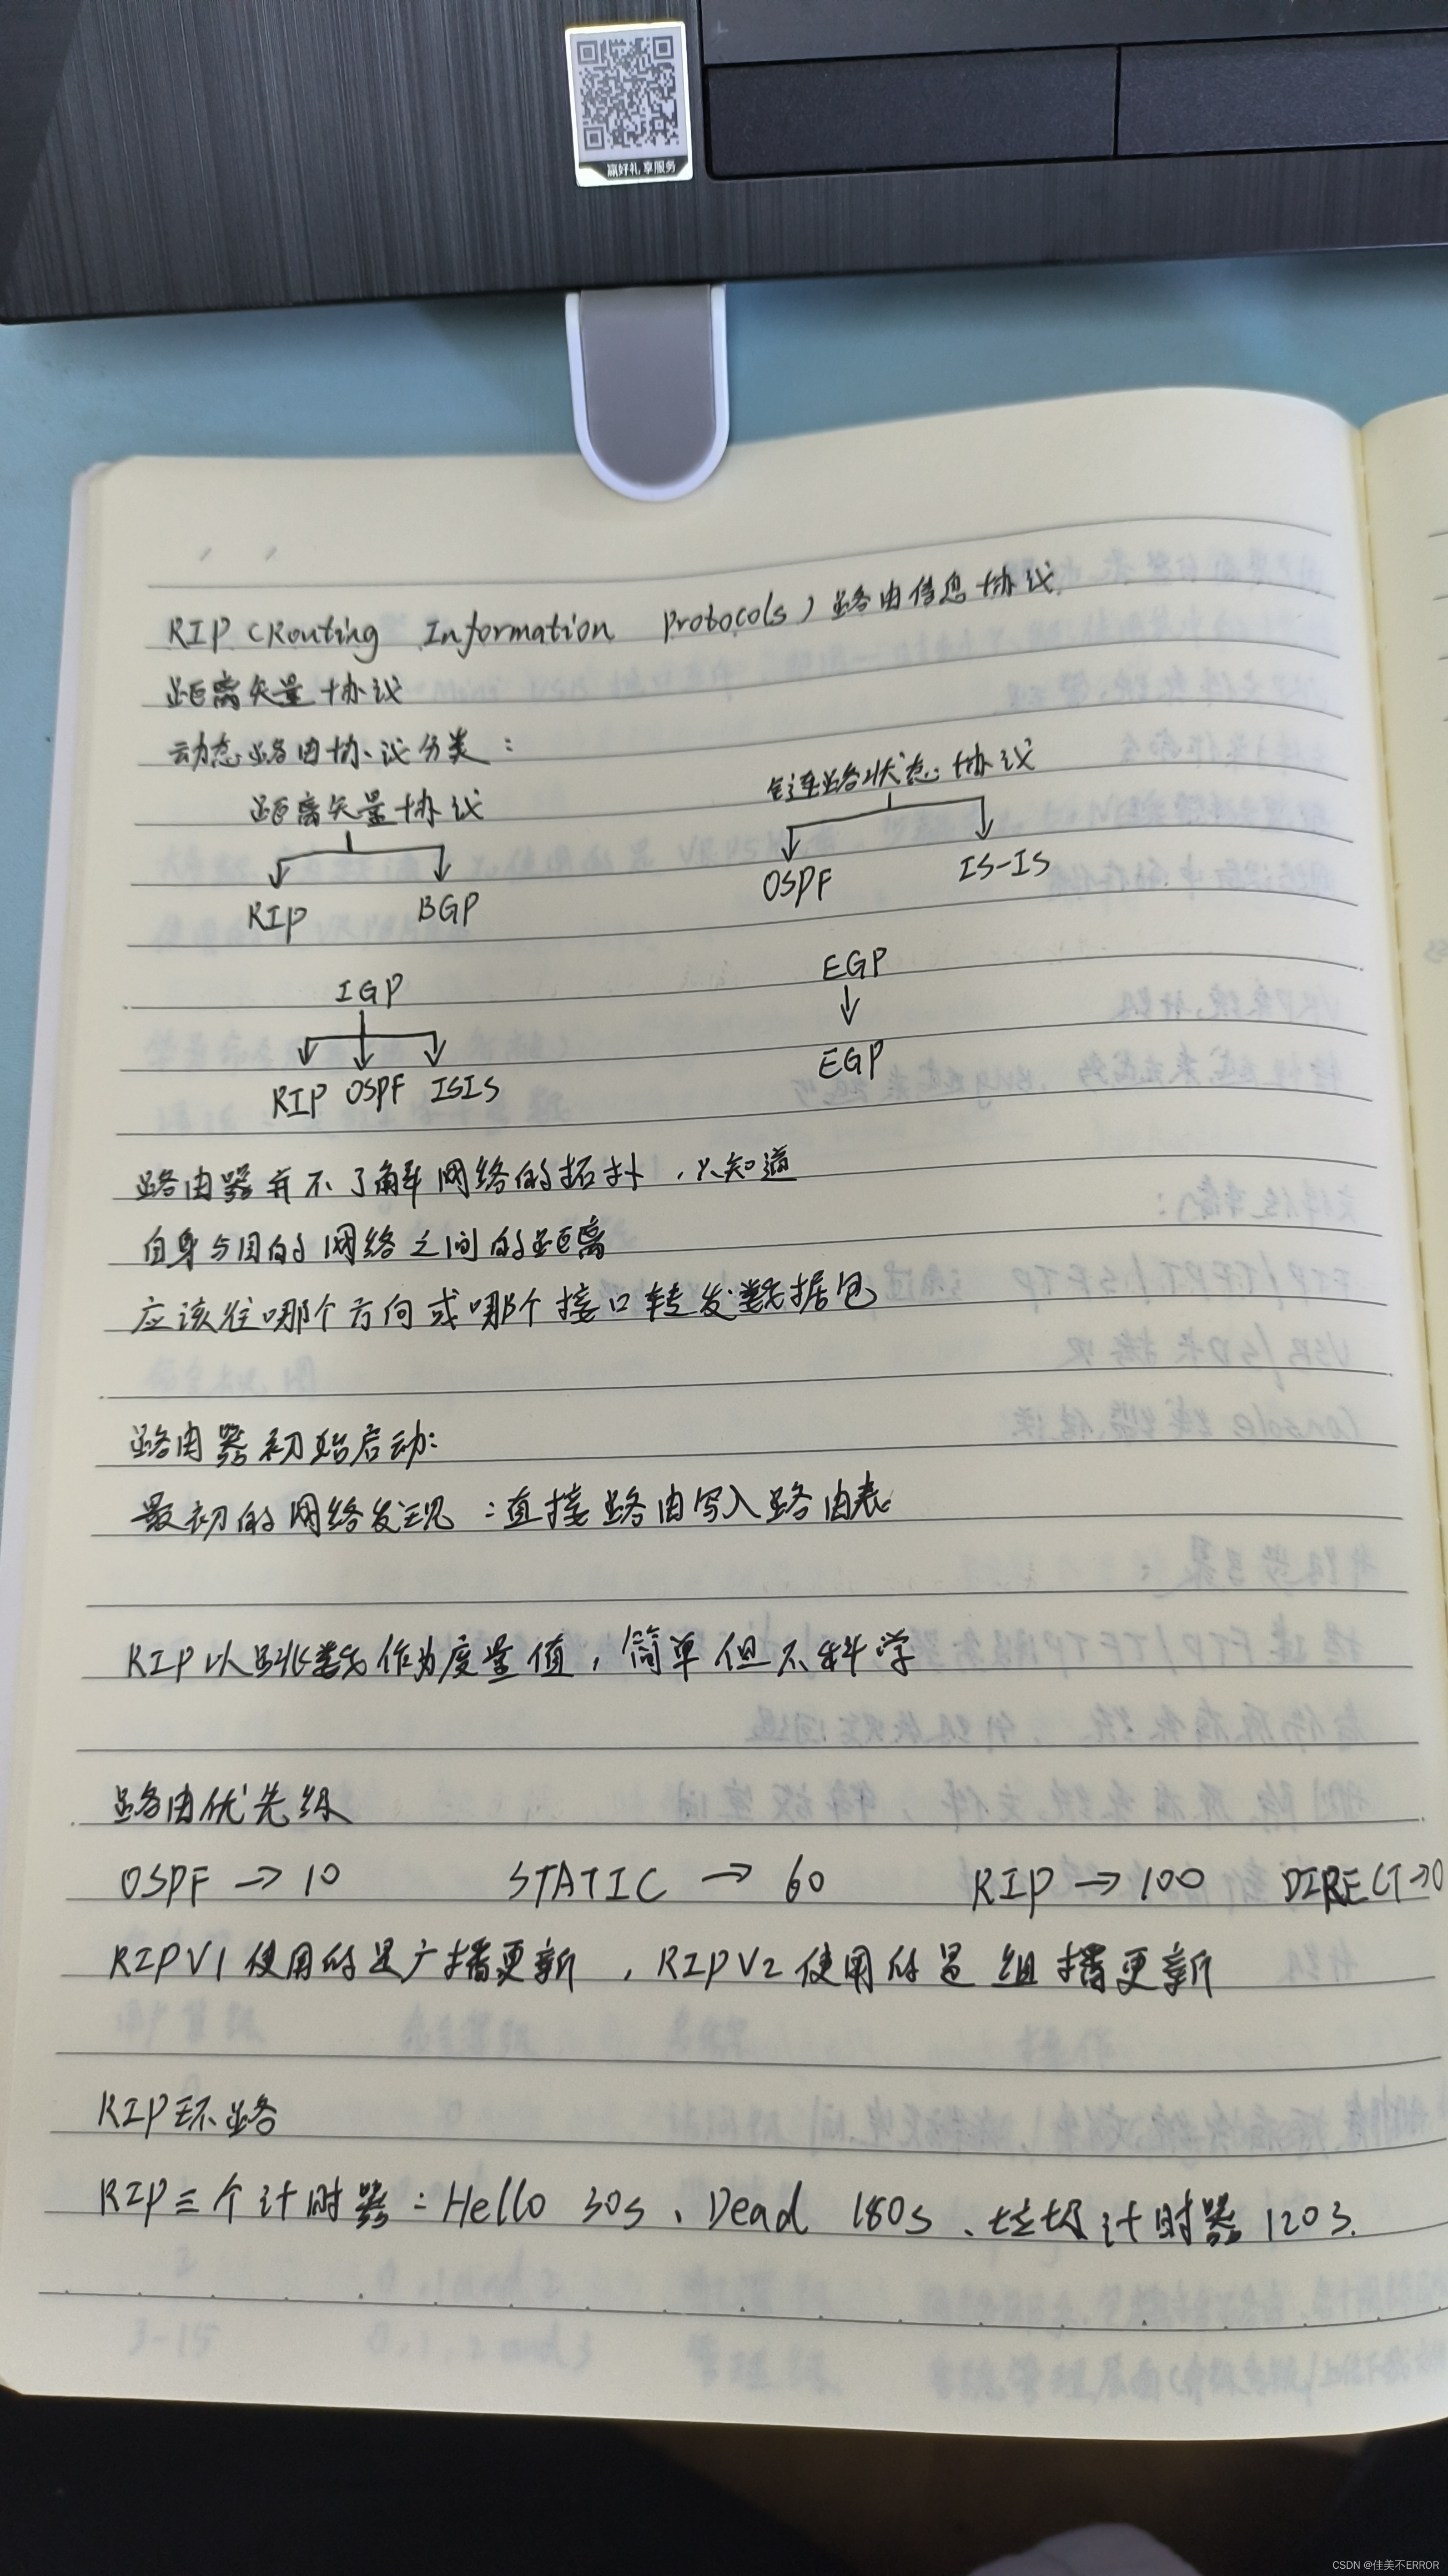 赢好礼 享服务
RIP (Routing Information Protocols) 路由信息协议
距离矢量协议
动态路由协议分类：
距离矢量协议 链路状态协议
RIP BGP OSPF IS-IS
IGP EGP
RIP OSPF ISIS EGP
路由器并不了解网络的拓扑，只知道
自身与目的网络之间的距离
应该往哪个方向或哪个接口转发数据包
路由器初始启动：
最初的网络发现：直接路由写入路由表
RIP以跳数作为度量值，简单但不科学
路由优先级
OSPF → 10 STATIC → 60 RIP → 100 DIRECT→0
RIPV1使用的是广播更新，RIPV2使用的是组播更新
RIP环路
RIP三个计时器：Hello 30s、Dead 180s、垃圾计时器 120s.
CSDN @佳美不ERROR